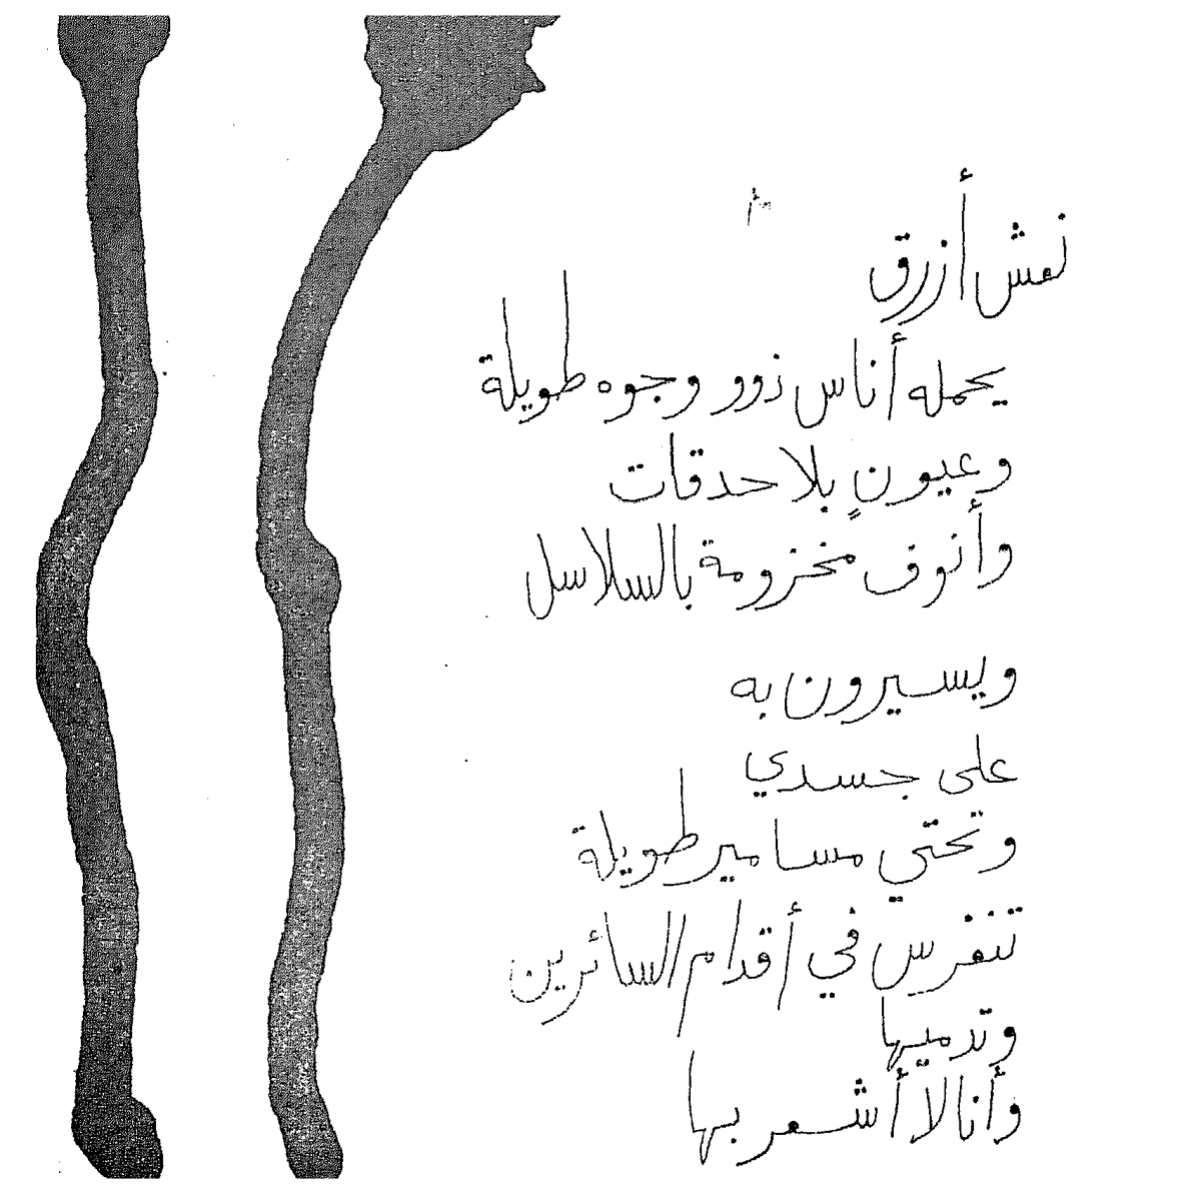 نعش أزرق
يحمله أناس ذوو وجوه طويلة
وعيونٍ بلا حدقات
وأنوف مخزومة بالسلاسل
ويسيرون به
على جسدي
وتحتي مسامير طويلة
تنغرس في أقدام السائرين
وتدميها
وأنا لا أشعر بها